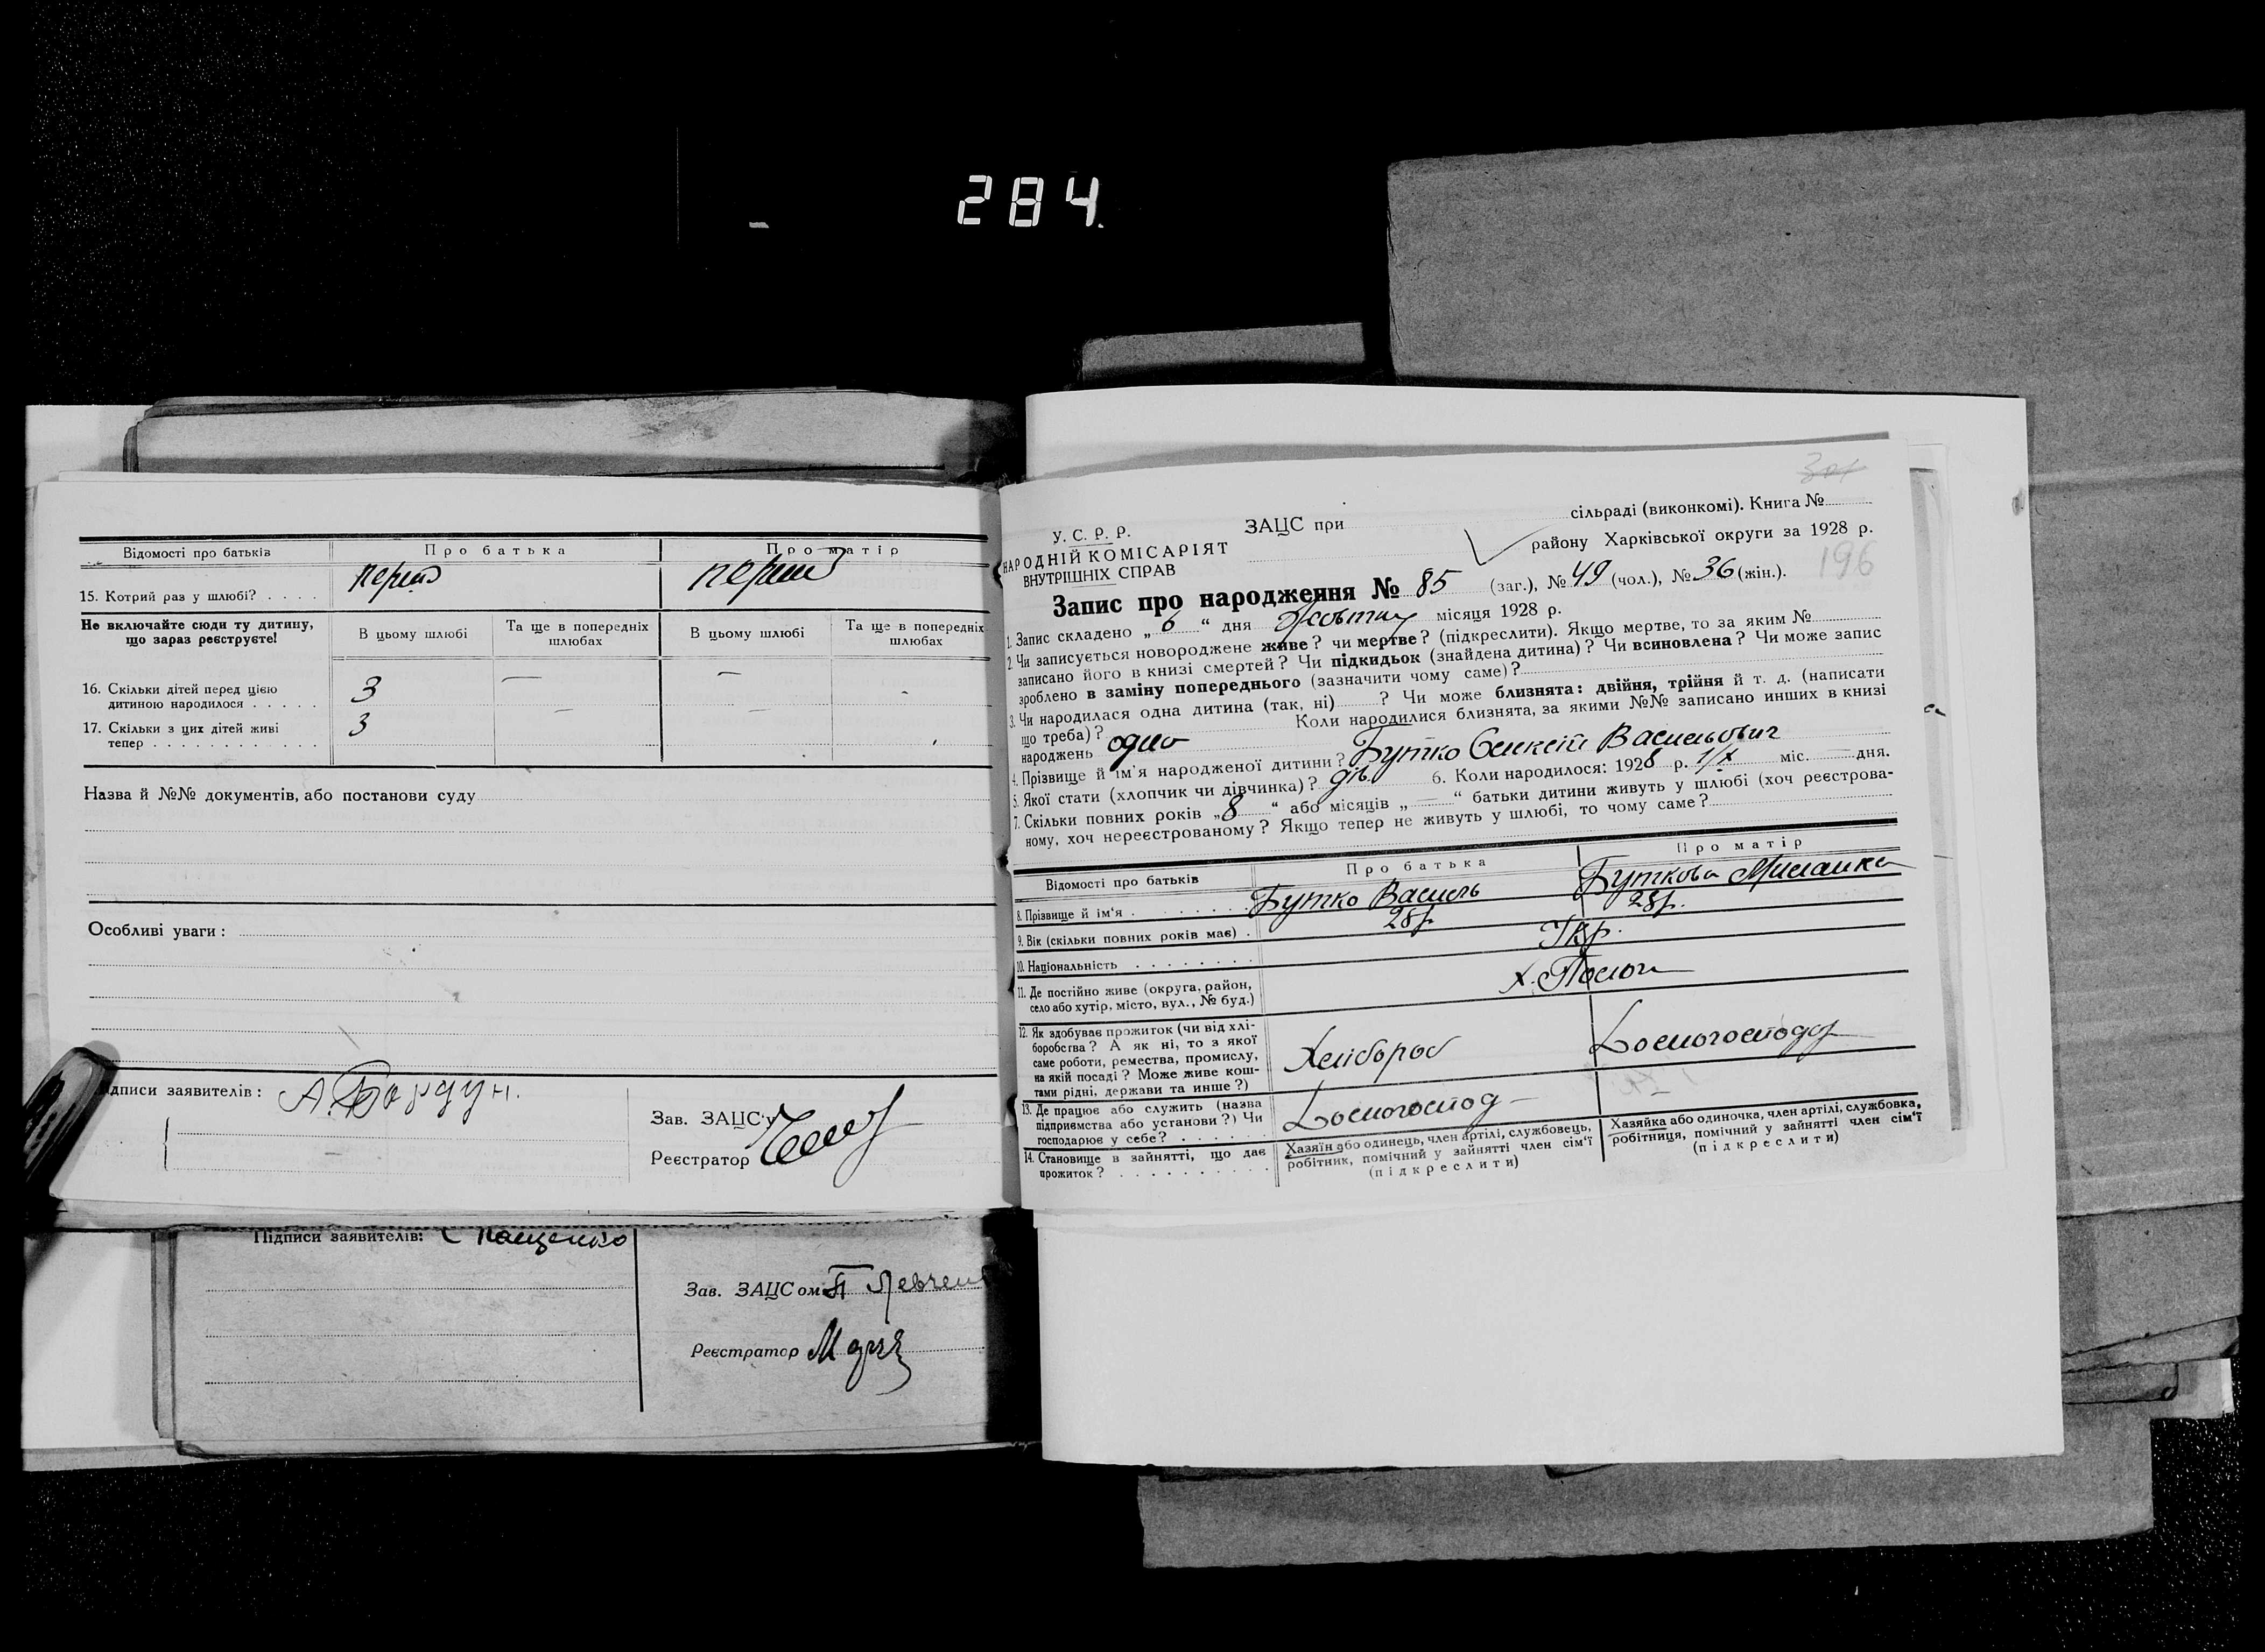 284.
Відомості про батьків
Про батька
Про матір
15. Котрий раз у шлюбі? . . . .
перший
перший
Не включайте сюди ту дитину, що зараз реєструєте!
В цьому шлюбі
Та ще в попередніх шлюбах
В цьому шлюбі
Та ще в попередніх шлюбах
16. Скільки дітей перед цією
дитиною народилося . . . . .
3 — —
17. Скільки з цих дітей живі
тепер . . . . . . . . . . . .
3 — —
Назва й №№ документів, або постанови суду
Особливі уваги:
дписи заявителів:
Зав. ЗАЦС'у
Реєстратор
Підписи заявителів: Пащенко
Зав. ЗАЦСом П Левчен
Реєстратор
У. С. Р. Р.
НАРОДНІЙ КОМІСАРІЯТ
ВНУТРІШНІХ СПРАВ
ЗАЦС при
сільраді (виконкомі). Книга №
району Харківської округи за 1928 р.
196
Запис про народження № 85 (заг.), № 49 (чол.), № 36 (жін.).
1. Запис складено „ 6 “ дня Жовтня місяця 1928 р.
2. Чи записується новороджене живе? чи мертве? (підкреслити). Якщо мертве, то за яким №
записано його в книзі смертей? Чи підкидьок (знайдена дитина)? Чи всиновлена? Чи може запис
зроблено в заміну попереднього (зазначити чому саме)?
3. Чи народилася одна дитина (так, ні) ? Чи може близнята: двійня, трійня й т. д. (написати
що треба)? Коли народилися близнята, за якими №№ записано инших в книзі
народжень одно
4. Прізвище й ім'я народженої дитини? Бутко Олексій Васильович
5. Якої стати (хлопчик чи дівчинка)? дів. 6. Коли народилося: 1928 р. 1/X міс. — дня.
7. Скільки повних років „ 8 “ або місяців „ — “ батьки дитини живуть у шлюбі (хоч реєстрова-
ному, хоч нереєстрованому? Якщо тепер не живуть у шлюбі, то чому саме?
Відомості про батьків
Про батька
Про матір
8. Прізвище й ім'я . . . . . . . .
Бутко Василь
Буткова Миланка
9. Вік (скільки повних років має) .
28р.
28р.
10. Національність . . . . . . . .
Укр.
11. Де постійно живе (округа, район,
село або хутір, місто, вул., № буд.)
12. Як здобуває прожиток (чи від хлі-
боробства? А як ні, то з якої
саме роботи, ремества, промислу,
на якій посаді? Може живе кош-
тами рідні, держави та инше?)
Хлібороб
Домогосподар
13. Де працює або служить (назва
підприємства або установи?) Чи
господарює у себе? . . . . . .
Домогоспод —
14. Становище в зайнятті, що дає
прожиток? . . . . . . . . . .
Хазяїн або одинець, член артілі, службовець,
робітник, помічний у зайнятті член сім'ї
(підкреслити)
Хазяйка або одиночка, член артілі, службовка,
робітниця, помічний у зайнятті член сім'ї
(підкреслити)